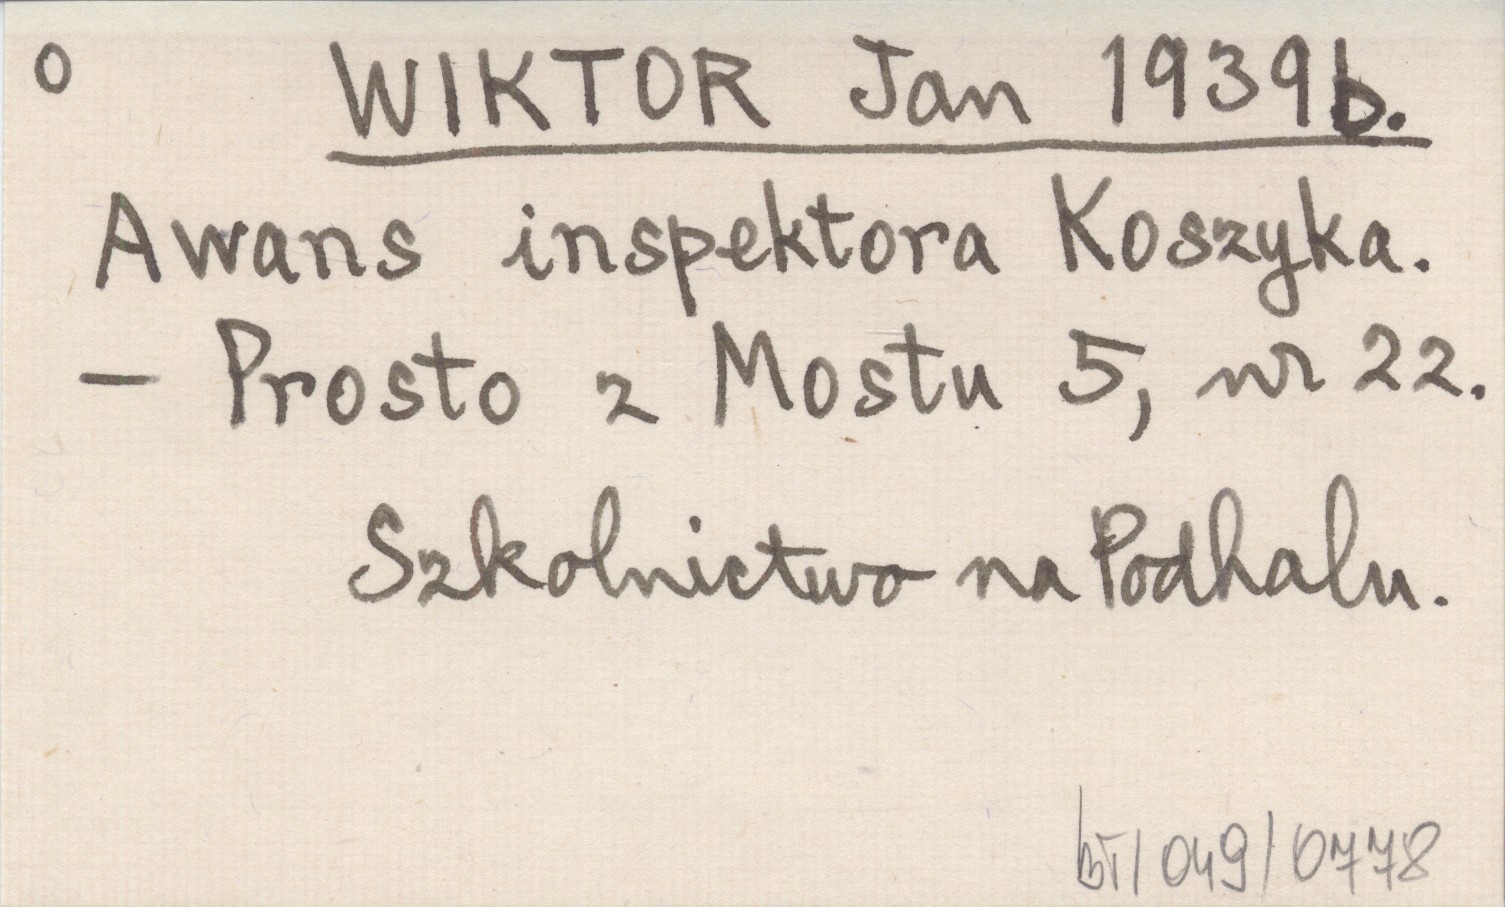 o WIKTOR Jan 1939b.
Awans inspektora Koszyka.
– Prosto z Mostu 5, nr 22.
Szkolnictwo na Podhalu.
bT/049/0778